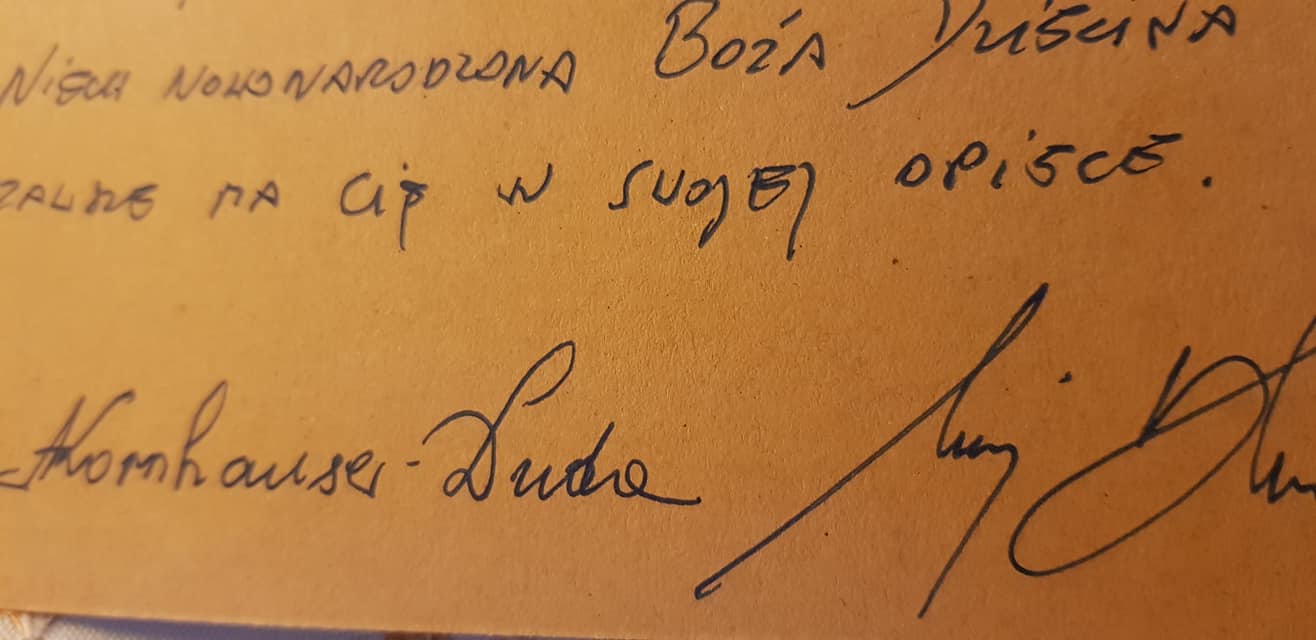 NIECH NOWONARODZONA BOŻA DZIECINA
ZAWSZE MA CIĘ W SWOJEJ OPIECE.
AKornhauser-Duda